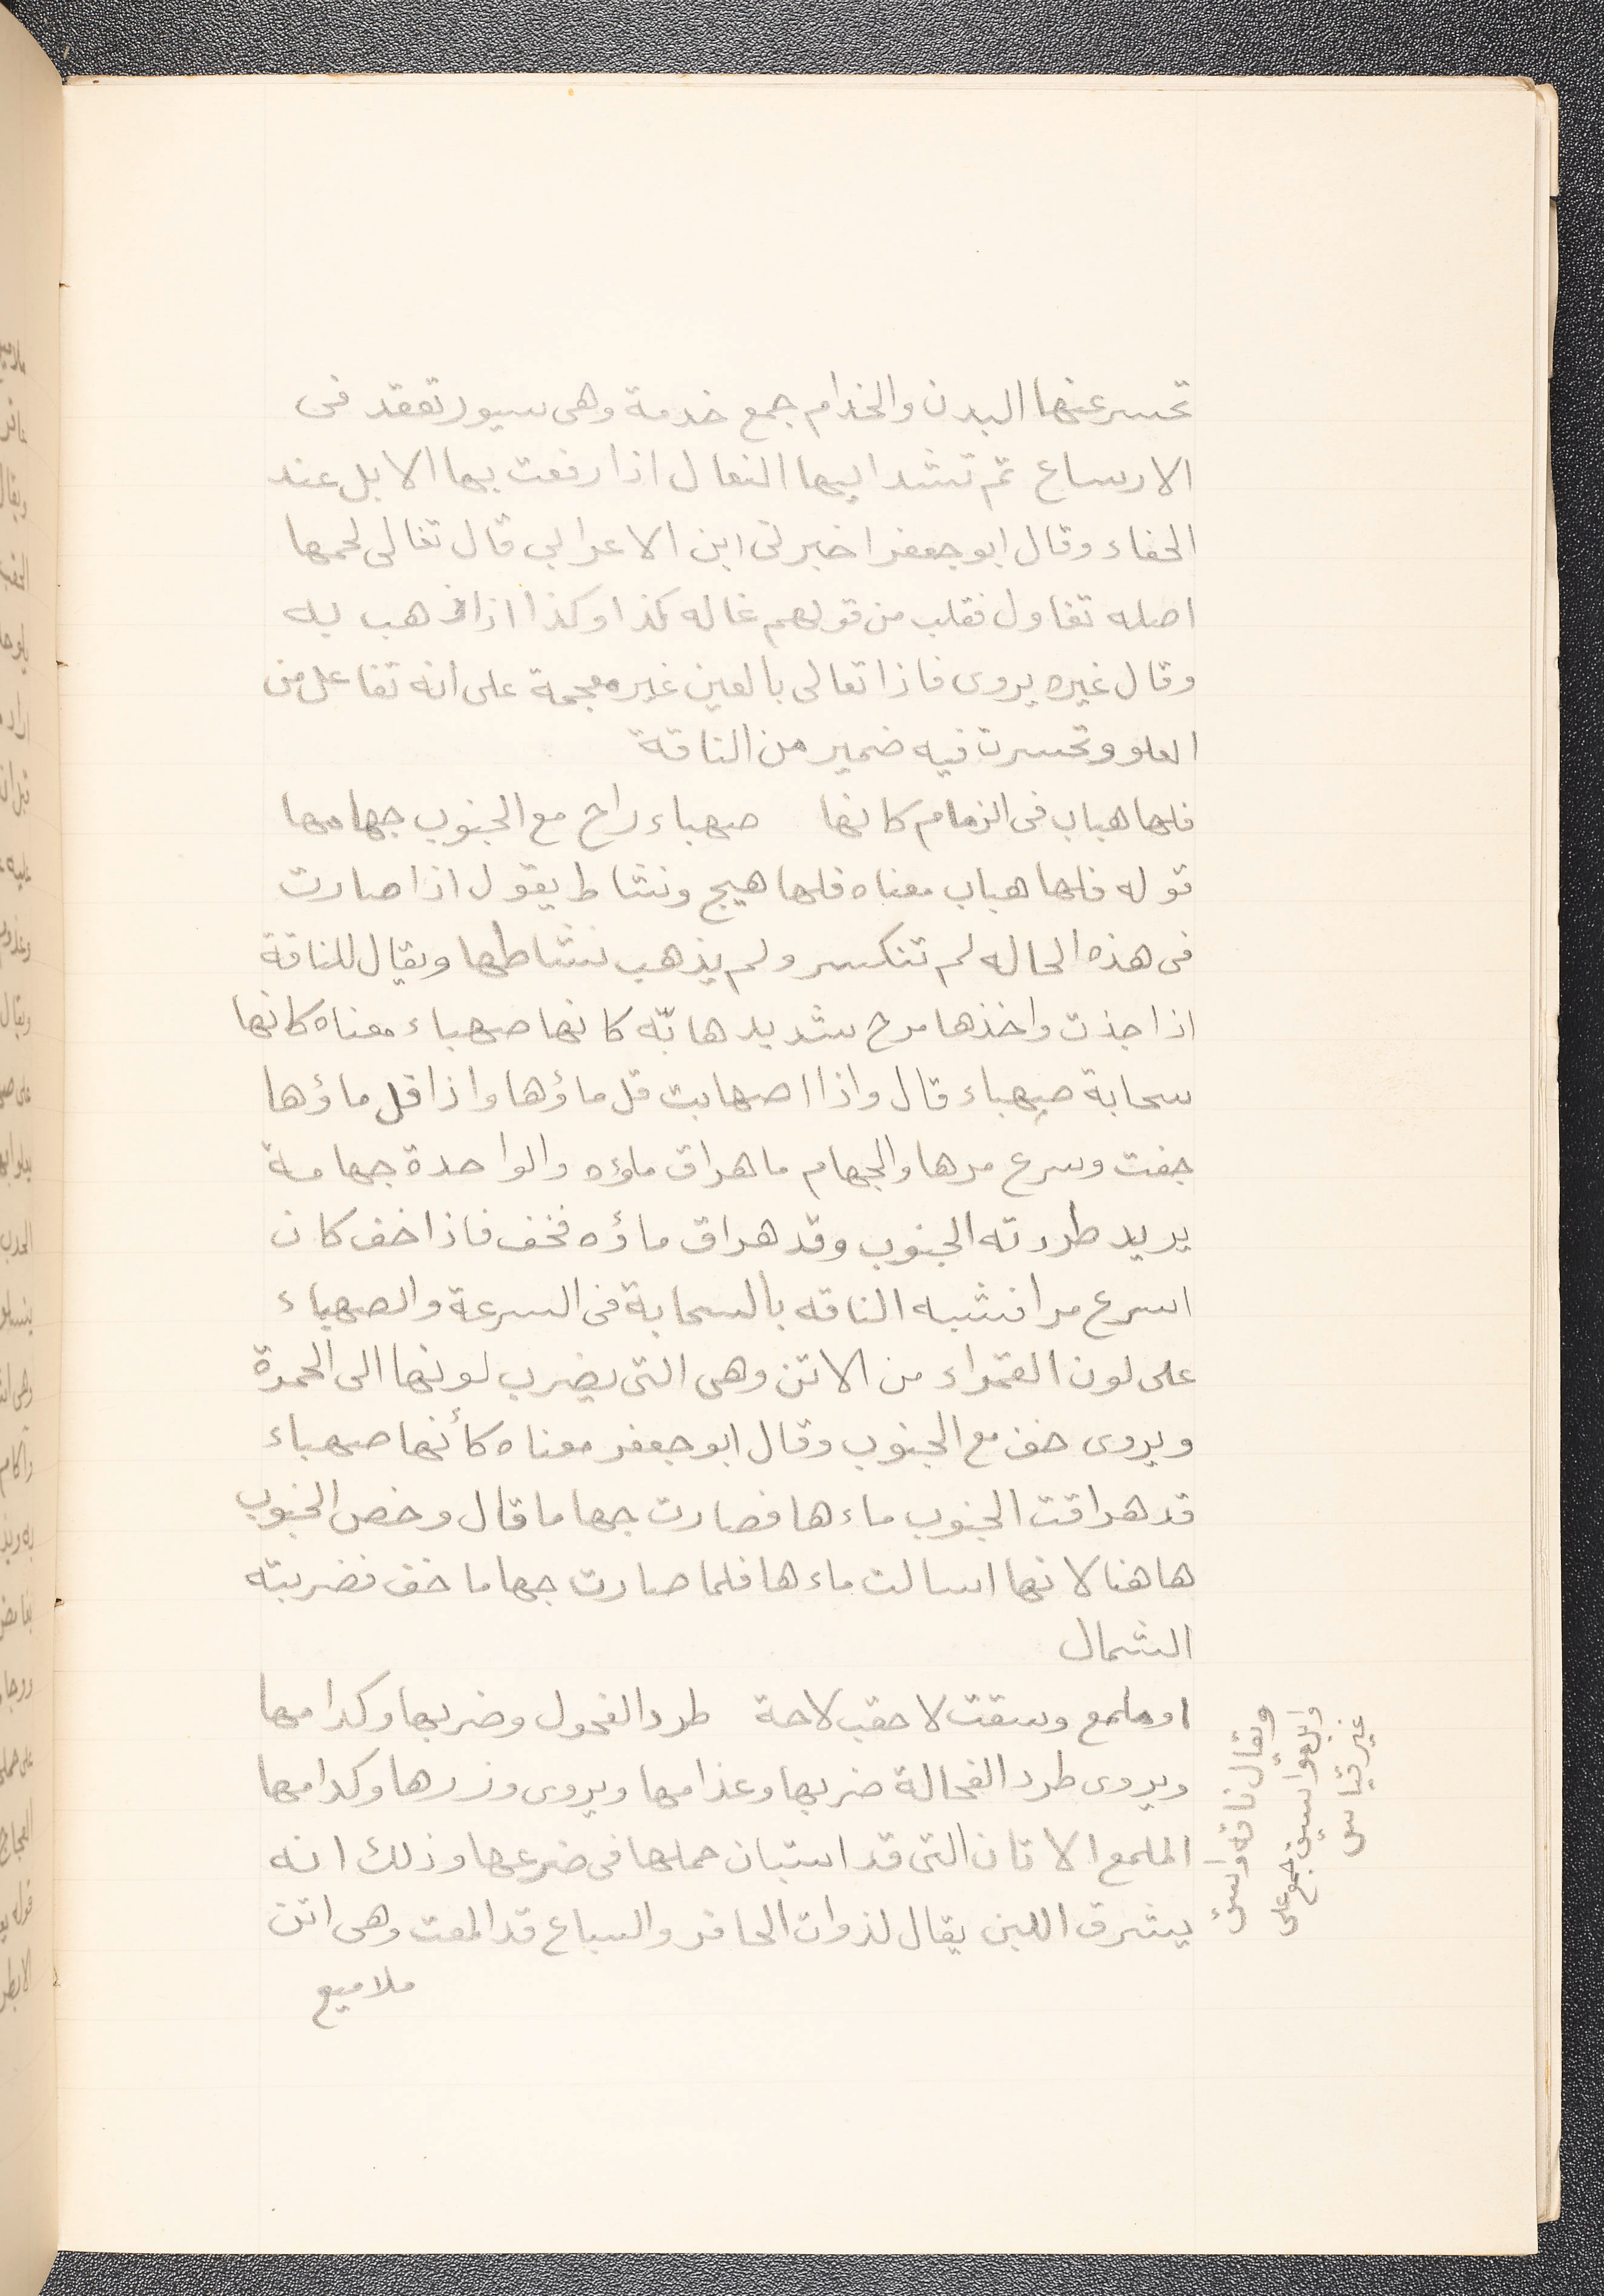 تحسر عنها البدن والخدام جمع خدمة وهى سيور تعقد فى
الارساع ثم تشد اليها النعال اذا رفعت بها الابل عند
الحفاء وقال ابو جعفر اخبرنى ابن الاعرابى قال تغالى لحمها
اصله تغاول فقلب من قولهم غاله كذا وكذا اذا ذهب به
وقال غيره يروى فاذا تعالى بالعين غير معجمة على انه تفاعل من
العلو وتحسرت فيه ضمير من الناقة
فلها هباب فى الزمام كانها صهباء راح مع الجنوب جهامها
قوله فلها هباب معناه فلها هيج ونشاط يقول اذا صارت
فى هذه الحاله لم تنكسر ولم يذهب نشاطها ويقال للناقة
اذا جذت واخذها مرح شديد هابّه كانها صهباء معناه كانها
سحابة صهباء قال واذا اصهابت قل ماؤها واذا قل ماؤها
جفت وسرع مرها والجهام ما هراق ماؤه والواحدة جهامة
يريد طردته الجنوب وقد هراق ماؤه فخف فاذا خف كان
اسرع مرا فشبه الناقه بالسحابة فى السرعة والصهباء
على لون القمراء من الاتن وهى التى يضرب لونها الى الحمرة
ويروى خف مع الجنوب وقال ابو جعفر معناه كأنها صهباء
قد هراقت الجنوب ماءها فصارت جهاما قال وخص الجنوب
هاهنا لانها اسالت ماءها فلما صارت جهاما خف فضربته
الشمال
او ملمع وسقت لاحقب لاحة طرد الفحول وضربها وكدامها
ويروى طرد الفحالة ضربها وعذامها ويروى وزرها وكدامها
الملمع الاتان التى قد استبان حملها فى ضرعها وذلك انه
يشرق اللبن يقال لذوات الحافر والسباع قد المعت وهى اتن
ملاميع
ويقال ناقة واسق
والمواسيق جمع على
غير قياس